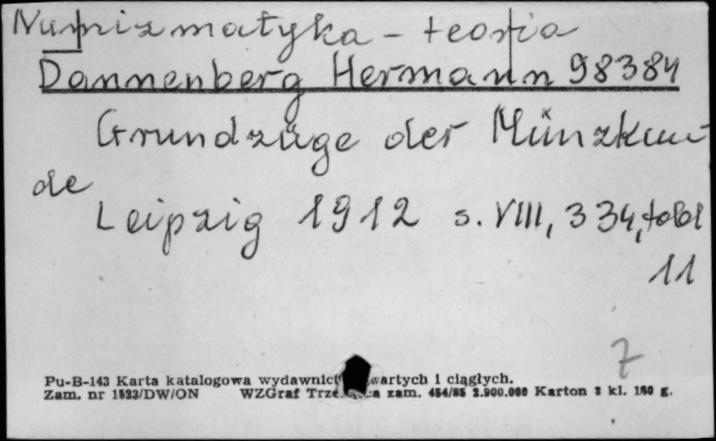 Numizmatyka - teoria
Dannenberg Hermann 98384
Grundzüge der Münzkun-
de
Leipzig 1912 s. VIII, 334, tabl
11
7
Pu-B-143 Karta katalogowa wydawnict wartych i ciągłych.
Zam. nr 1523/DW/ON WZGraf zam. 454/85 2.900.000 Karton 3 kl. 180 g.